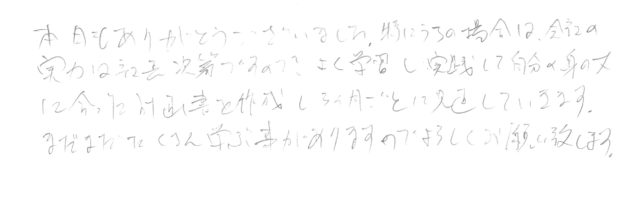 本日もありがとうございました。特にうちの場合は、会社の
実力は社長次第ですので、よく学習し実践して自分の身の丈
に合った計画書を作成し3ヶ月ごとに見直していきます。
まだまだたくさん学ぶ事がありますのでよろしくお願い致します。